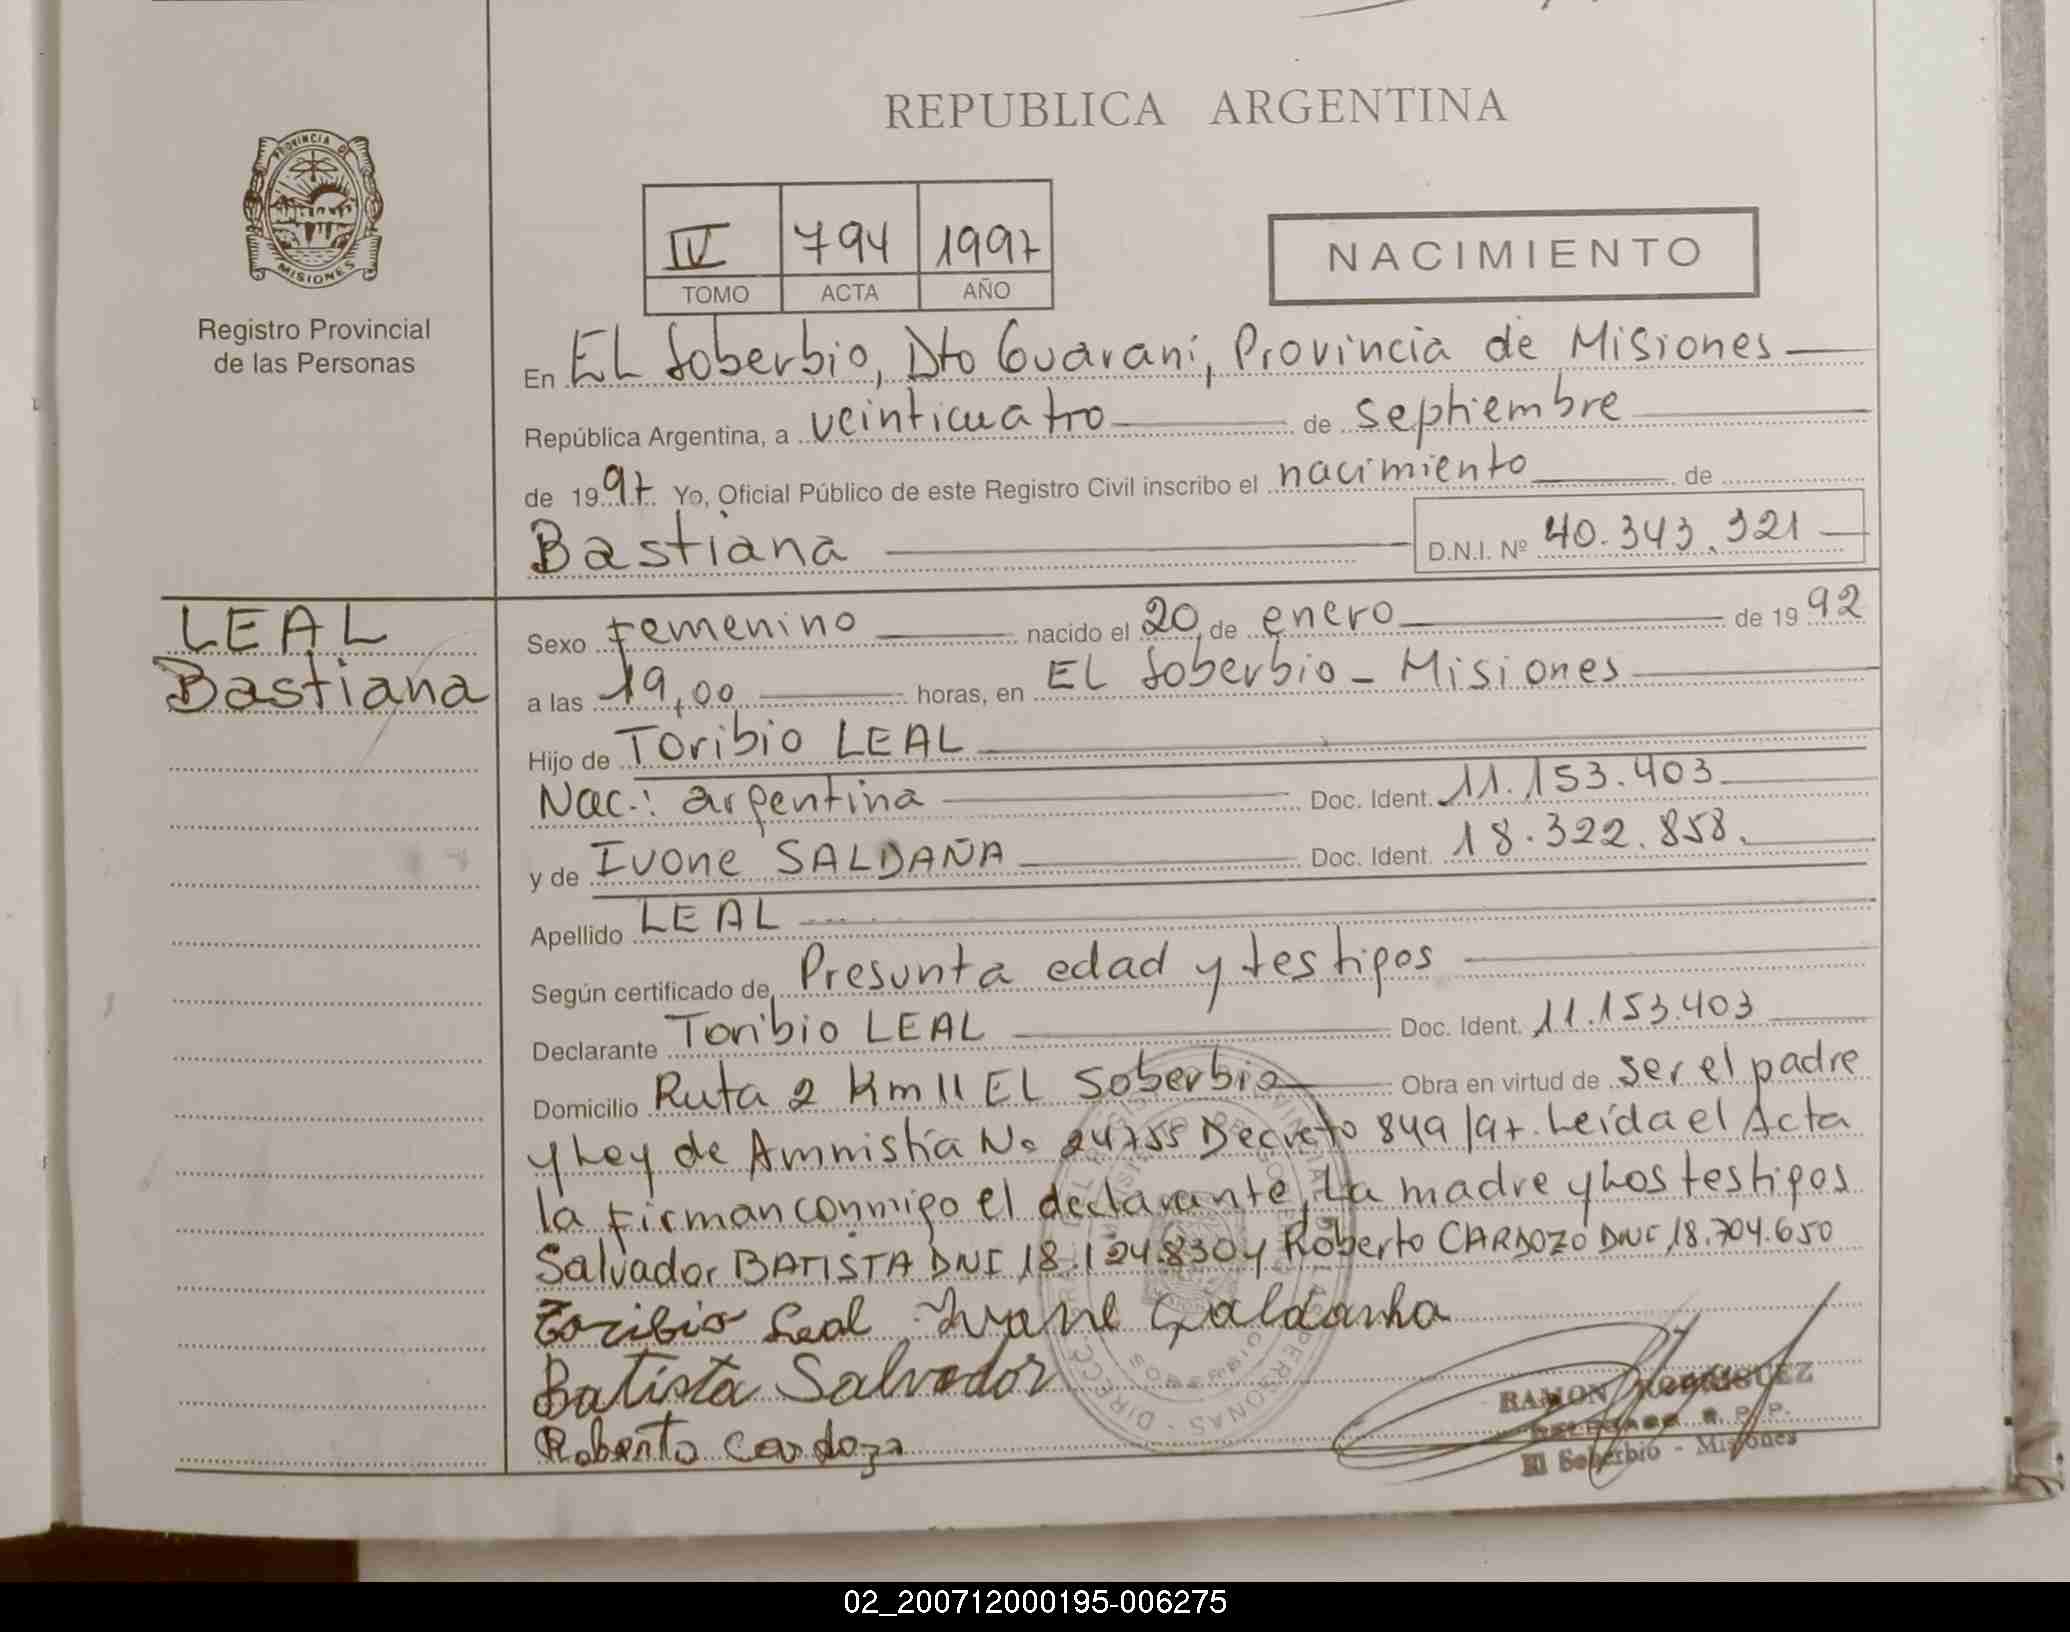 REPUBLICA ARGENTINA
PROVINCIA DE
MISIONES
Registro Provincial
de las Personas
IV 794 1997
TOMO ACTA AÑO
NACIMIENTO
En EL Soberbio, Dto Guaraní, Provincia de Misiones
República Argentina, a veinticuatro de septiembre
de 1997 Yo, Oficial Público de este Registro Civil inscribo el nacimiento de
Bastiana D.N.I. Nº 40.343.921
LEAL
Bastiana
Sexo femenino nacido el 20 de enero de 1992
a las 19,00 horas, en EL Soberbio - Misiones
Hijo de Toribio LEAL
Nac.: argentina Doc. Ident. 11.153.403
y de Ivone SALDAÑA Doc. Ident. 18.322.858.
Apellido LEAL
Según certificado de Presunta edad y testigos
Declarante Toribio LEAL Doc. Ident. 11.153.403
Domicilio Ruta 2 Km 11 EL Soberbio Obra en virtud de ser el padre
y Ley de Amnistía Nº 24755 Decreto 849/97. Leída el Acta
la firman conmigo el declarante, La madre y Los testigos
Salvador BATISTA DNI 18.124.830 y Roberto CARDOZO DNI 18.704.650
Toribio Leal Ivone Saldanha
Batista Salvador
Roberto Cardozo
RAMON RODRIGUEZ
DELEGADO R.P.P.
El Soberbio - Misiones
02_200712000195-006275